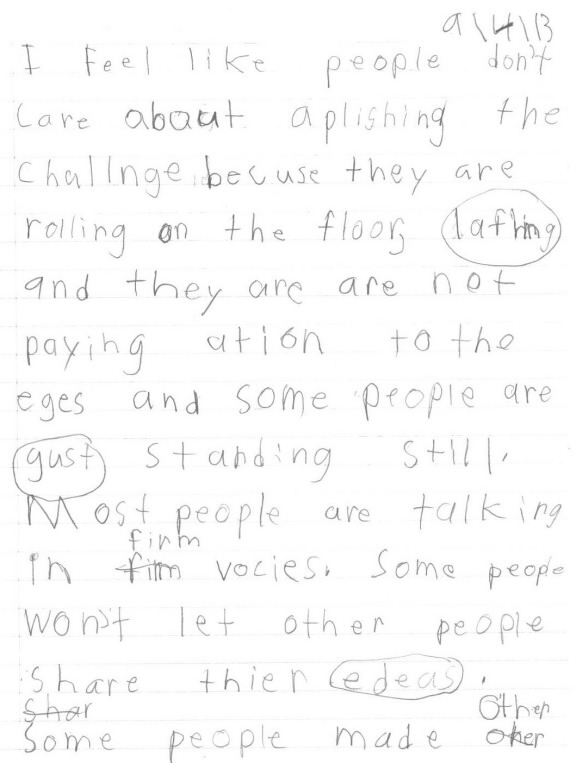 9\4\13
I feel like people don't
care about aplishing the
challnge becuse they are
rolling on the floor, lafhing
and they are are not
paying ation to the
eges and some people are
gust standing still.
Most people are talking
firm
in firm vocies. Some people
won't let other people
share thier edeas.
shar
Other
Some people made oher